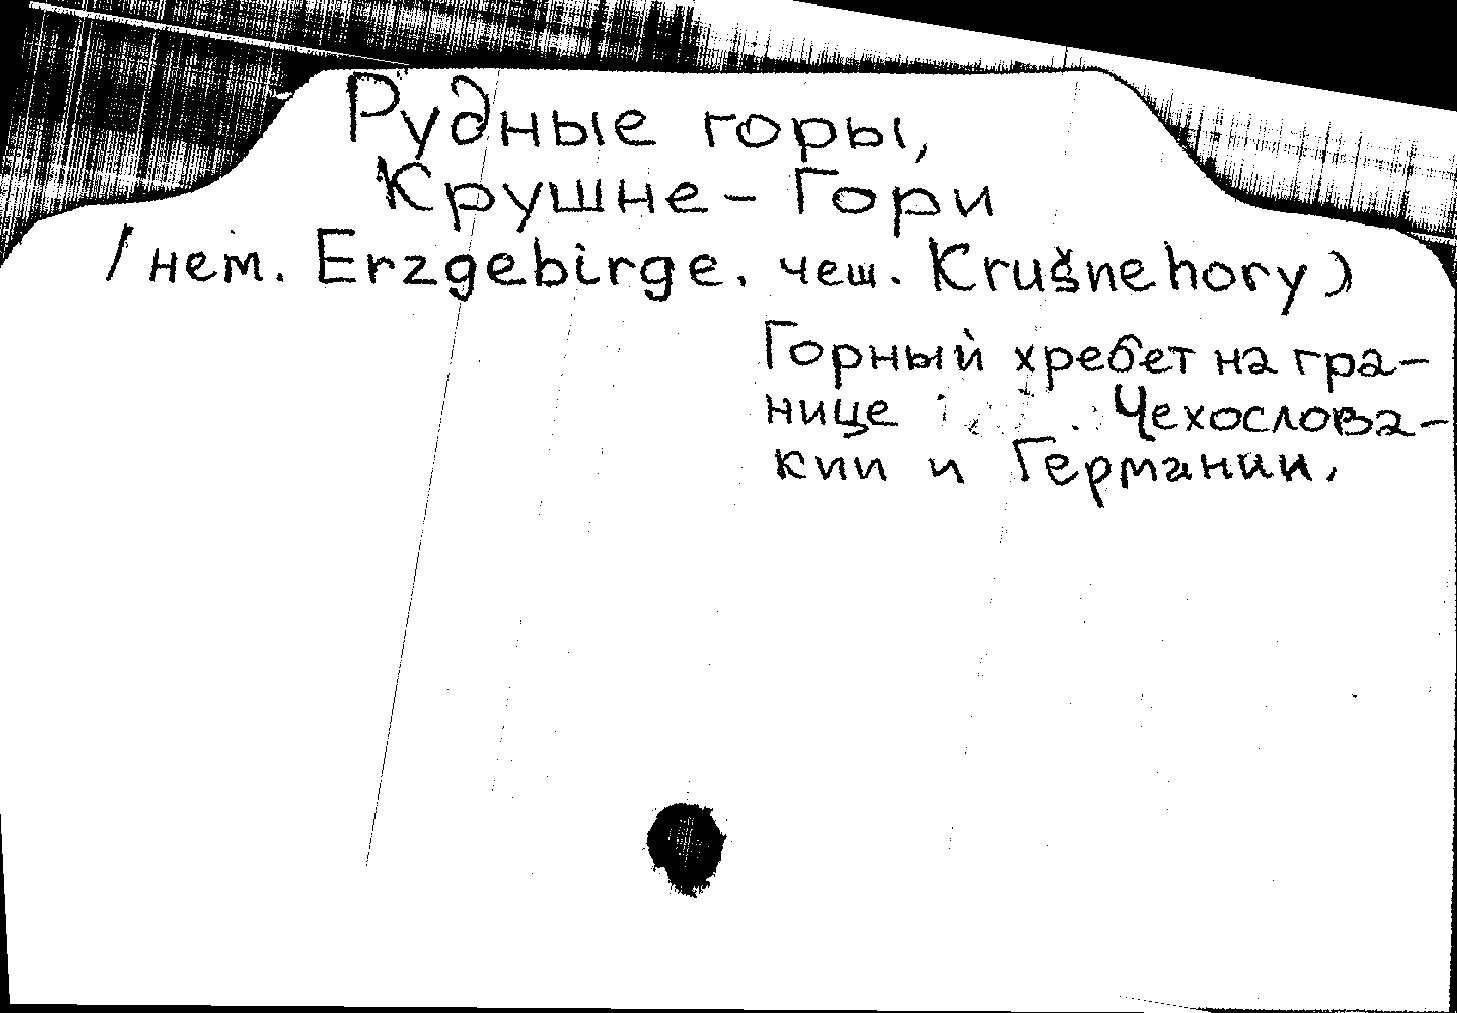 Рудные горы,
Крушне-Гори
/нем. Erzgebirge. чеш. Krušnehory)
Горный хребет на гра-
нице Чехослова-
кии и Германии.